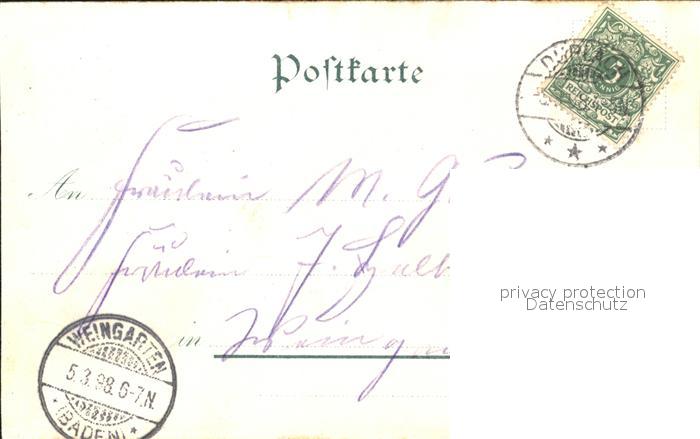 Postkarte
DURLACH
5
PFENNIG
REICHSPOST
An Fräulein M. G
Fräulein J.
in Weinga
privacy protection
Datenschutz
WEINGARTEN
5.3.98.6-7.N.
(BADEN)